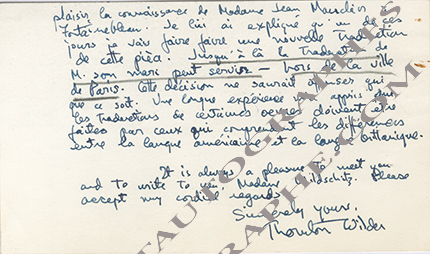 plaisir la connaissance de Madame Jean Mauclair à
Fontainebleau. Je lui ai expliqué qu'un de ces
jours je vais faire faire une nouvelle traduction
de cette pièce. Jusqu'à là la traduction de
M. son mari peut servir hors de la ville
de Paris. Cette décision ne saurait offenser qui
que ce soit. Une longue expérience m'a appris que
les traductions de certaines oeuvres doivent être
faites par ceux qui comprennent les différences
entre la langue américaine et la langue brittanique.
It is always a pleasure to meet you
and to write to you, Madame. Please
accept my cordial regards
Sincerely yours,
Thornton Wilder
AUTOGRAPHES